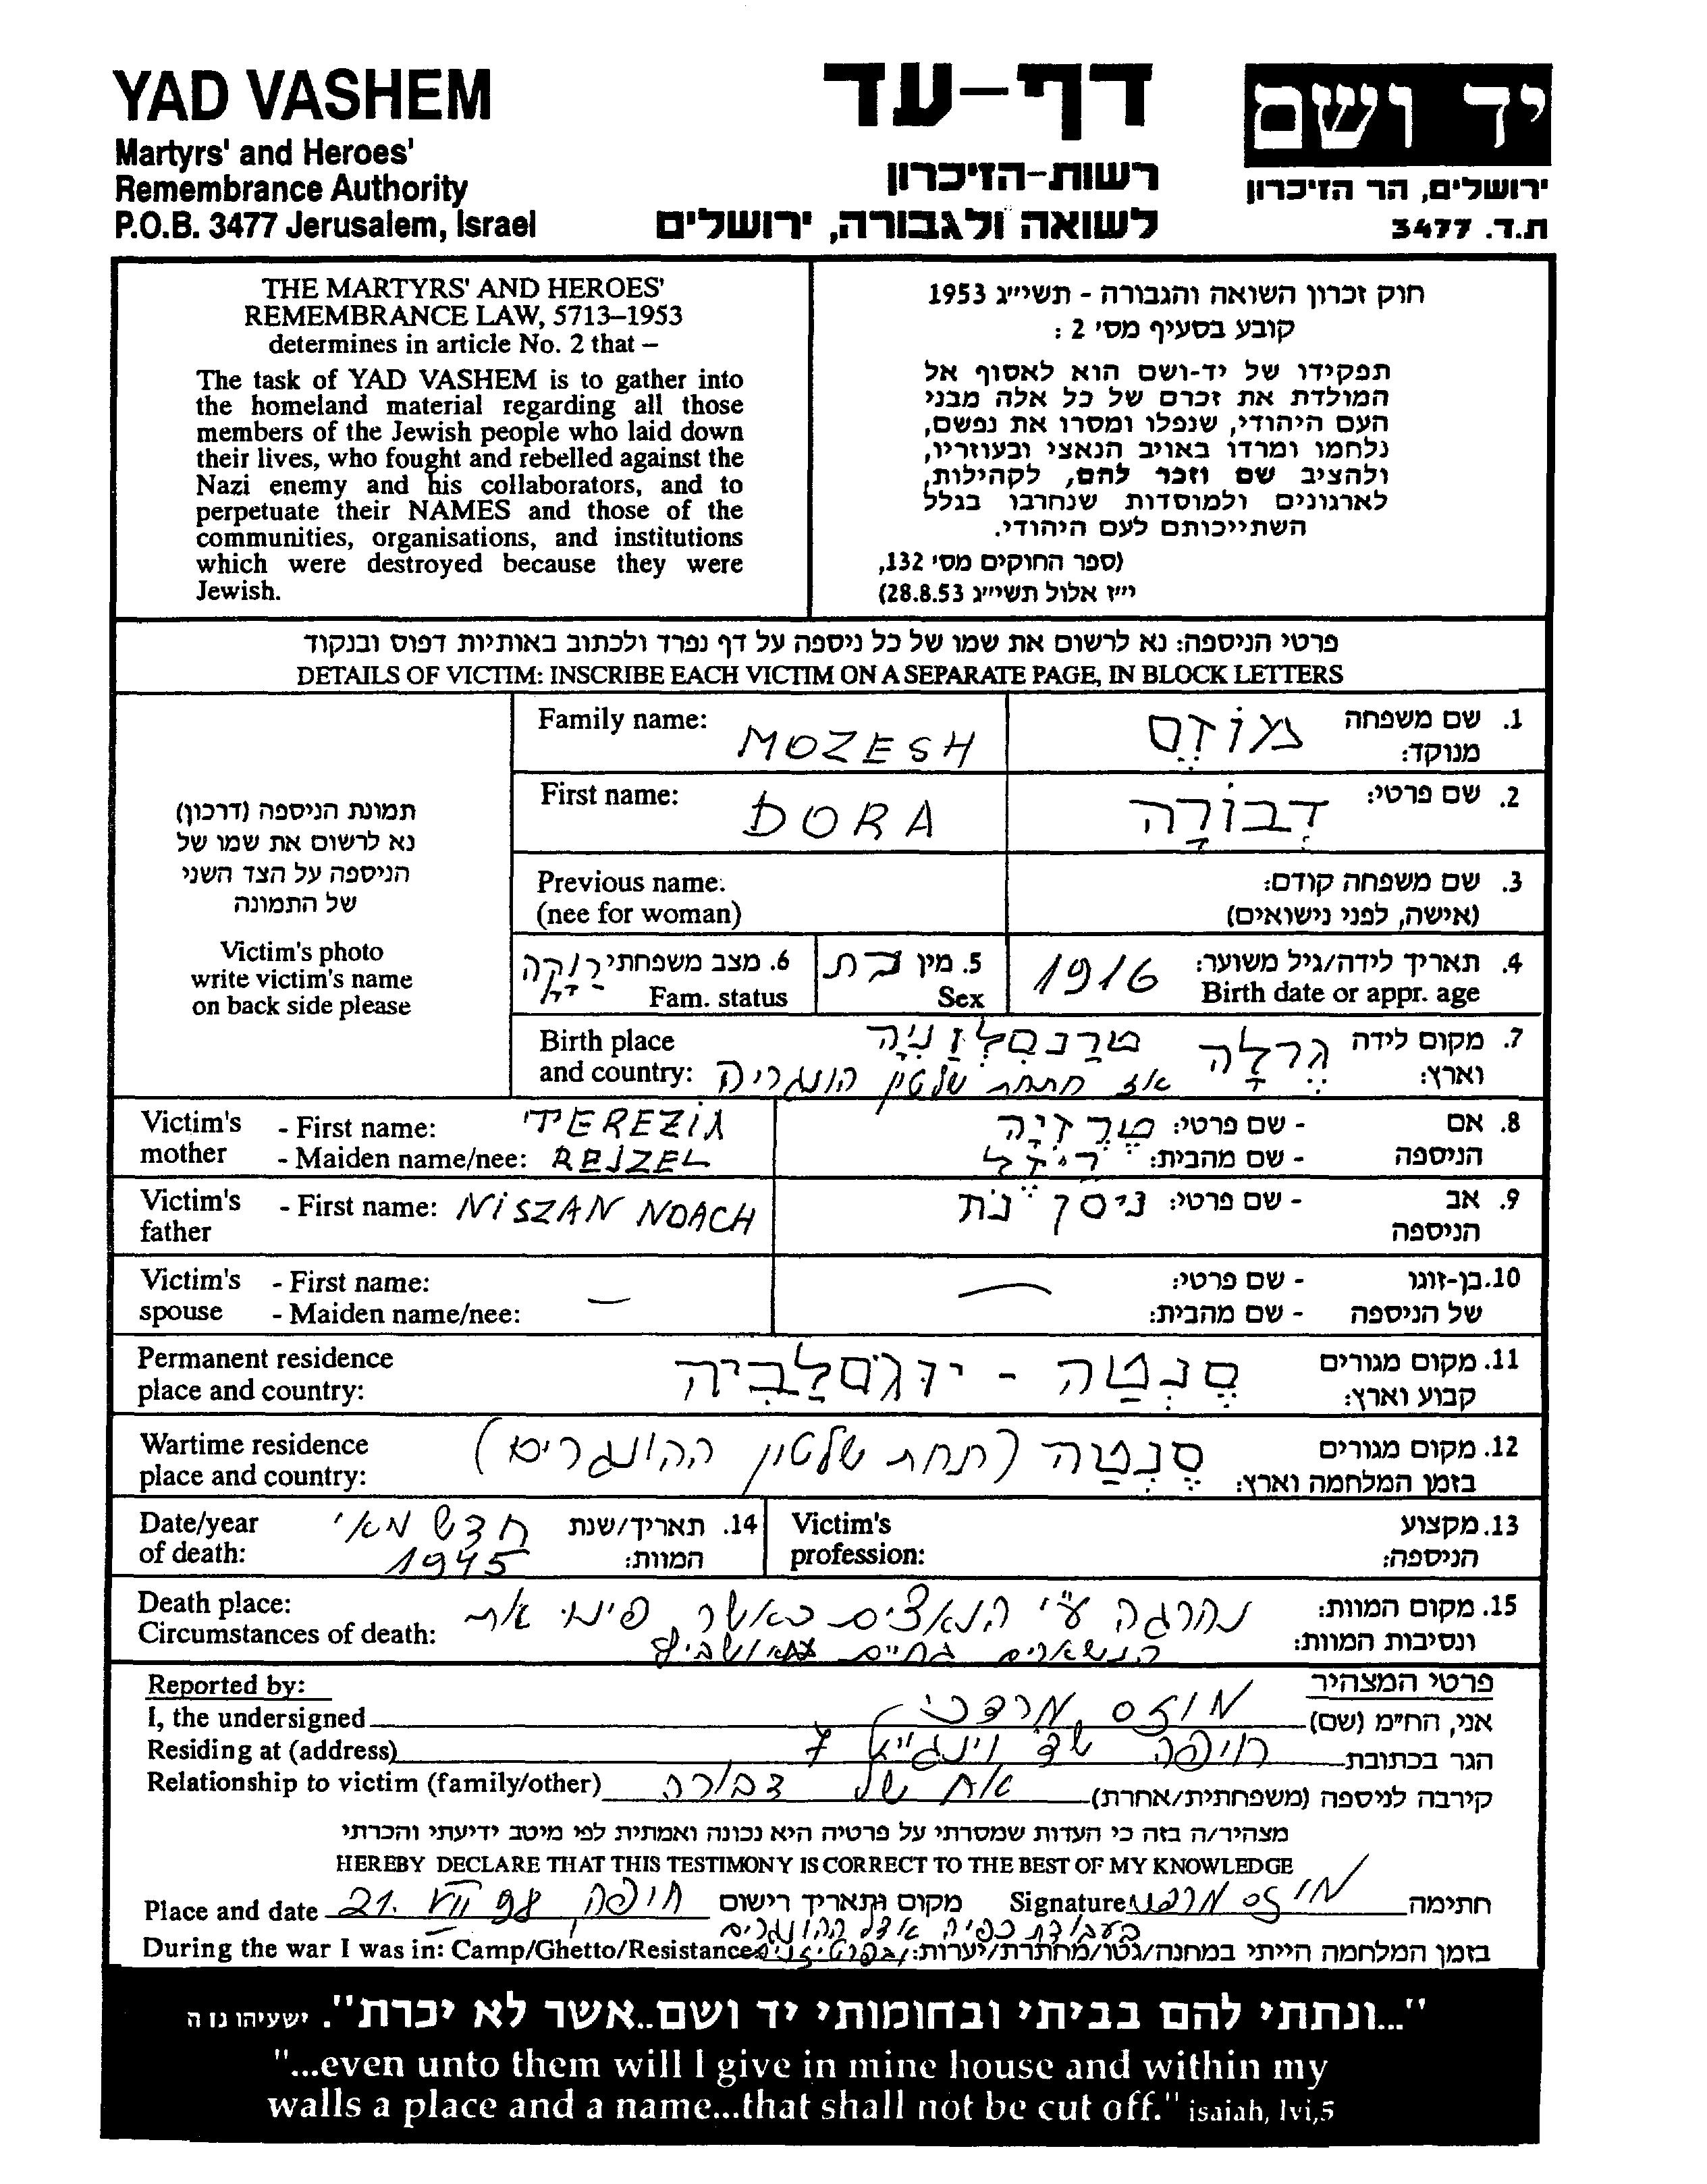 YAD VASHEM
Martyrs' and Heroes'
Remembrance Authority
P.O.B. 3477 Jerusalem, Israel
דף-עד
רשות-הזיכרון
לשואה ולגבורה, ירושלים
יד ושם
ירושלים, הר הזיכרון
ת.ד. 3477
THE MARTYRS' AND HEROES'
REMEMBRANCE LAW, 5713–1953
determines in article No. 2 that –
The task of YAD VASHEM is to gather into
the homeland material regarding all those
members of the Jewish people who laid down
their lives, who fought and rebelled against the
Nazi enemy and his collaborators, and to
perpetuate their NAMES and those of the
communities, organisations, and institutions
which were destroyed because they were
Jewish.
חוק זכרון השואה והגבורה - תשי"ג 1953
קובע בסעיף מס' 2 :
תפקידו של יד-ושם הוא לאסוף אל
המולדת את זכרם של כל אלה מבני
העם היהודי, שנפלו ומסרו את נפשם,
נלחמו ומרדו באויב הנאצי ובעוזריו,
ולהציב שם וזכר להם, לקהילות,
לארגונים ולמוסדות שנחרבו בגלל
השתייכותם לעם היהודי.
(ספר החוקים מס' 132,
י"ז אלול תשי"ג 28.8.53)
פרטי הניספה: נא לרשום את שמו של כל ניספה על דף נפרד ולכתוב באותיות דפוס ובנקוד
DETAILS OF VICTIM: INSCRIBE EACH VICTIM ON A SEPARATE PAGE, IN BLOCK LETTERS
תמונת הניספה (דרכון)
נא לרשום את שמו של
הניספה על הצד השני
של התמונה
Victim's photo
write victim's name
on back side please
Family name: MOZESH
1. שם משפחה מוזֶס
מנוקד:
First name: DORA
2. שם פרטי: דְבוֹרָה
Previous name:
(nee for woman)
3. שם משפחה קודם:
(אישה, לפני נישואים)
4. תאריך לידה/גיל משוער: 1916
Birth date or appr. age
5. מין בת
Sex
6. מצב משפחתי רַוָקָה
Fam. status
Birth place
and country:
7. מקום לידה גֶרְלָה טרַנסִלְוַנִיָה
וארץ: אז תחת שלטון הונגריה
Victim's mother - First name: TEREZIA
- Maiden name/nee: REJZEL
8. אם הניספה - שם פרטי: טֶרֶזִיָה
- שם מהבית: רֵיזֶל
Victim's father - First name: NISZAN NOACH
9. אב הניספה - שם פרטי: ניסן נֹחַ
Victim's spouse - First name:
- Maiden name/nee: —
10. בן-זוגו של הניספה - שם פרטי: —
- שם מהבית:
Permanent residence
place and country:
11. מקום מגורים
קבוע וארץ: סֶנְטַה - יוּגֹסלַבִיה
Wartime residence
place and country:
12. מקום מגורים
בזמן המלחמה וארץ: סֶנְטַה (תחת שלטון ההונגרים)
Date/year
of death:
14. תאריך/שנת
המוות: חדש מאי
1945
Victim's
profession:
13. מקצוע
הניספה:
Death place:
Circumstances of death:
15. מקום המוות: נהרגה ע"י הנאצים כאשר פינו את
ונסיבות המוות: הנשארים בחיים מאושביץ
Reported by:
פרטי המצהיר
I, the undersigned
אני, הח"מ (שם) מוזס מרדכי
Residing at (address)
הגר בכתובת חיפה שד וינגייט 7
Relationship to victim (family/other)
קירבה לניספה (משפחתית/אחרת) אח של דבורה
מצהיר/ה בזה כי העדות שמסרתי על פרטיה היא נכונה ואמתית לפי מיטב ידיעתי והכרתי
HEREBY DECLARE THAT THIS TESTIMONY IS CORRECT TO THE BEST OF MY KNOWLEDGE
Place and date 21. VII 98 חיפה, מקום ותאריך רישום
Signature מוזס מרדכי חתימה
בעבודת כפיה אצל ההונגרים
During the war I was in: Camp/Ghetto/Resistance
בזמן המלחמה הייתי במחנה/גטו/מחתרת/יערות: ובפרטיזנים
"...ונתתי להם בביתי ובחומותי יד ושם..אשר לא יכרת". ישעיהו נו ה
"...even unto them will I give in mine house and within my
walls a place and a name...that shall not be cut off." isaiah, lvi,5